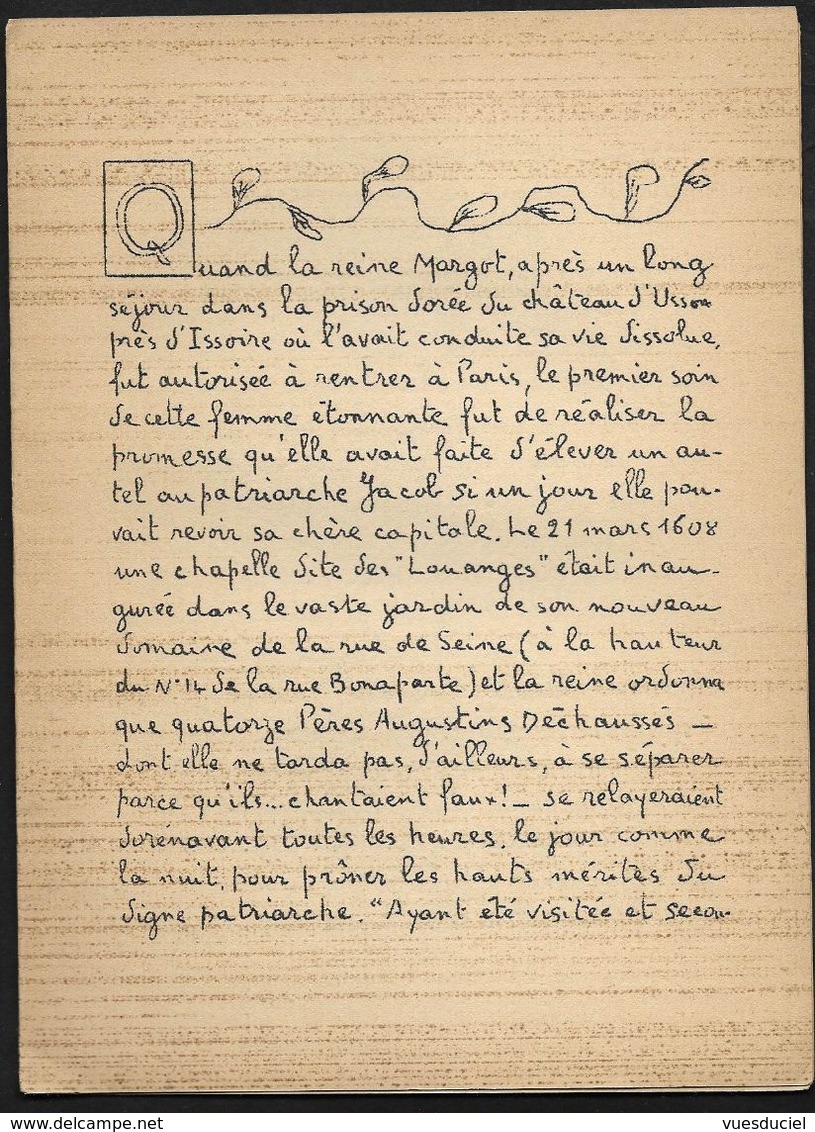 Quand la reine Margot, après un long
séjour dans la prison dorée du château d'Usson
près d'Issoire où l'avait conduite sa vie dissolue,
fut autorisée à rentrer à Paris, le premier soin
de cette femme étonnante fut de réaliser la
promesse qu'elle avait faite d'élever un au-
tel au patriarche Jacob si un jour elle pou-
vait revoir sa chère capitale. Le 21 mars 1608
une chapelle dite des "Louanges" était inau-
gurée dans le vaste jardin de son nouveau
domaine de la rue de Seine (à la hauteur
du N° 14 de la rue Bonaparte) et la reine ordonna
que quatorze Pères Augustins Déchaussés —
dont elle ne tarda pas, d'ailleurs, à se séparer
parce qu'ils... chantaient faux! — se relayeraient
dorénavant toutes les heures, le jour comme
la nuit, pour prôner les hauts mérites du
digne patriarche. "Ayant été visitée et secou-
vuesduciel